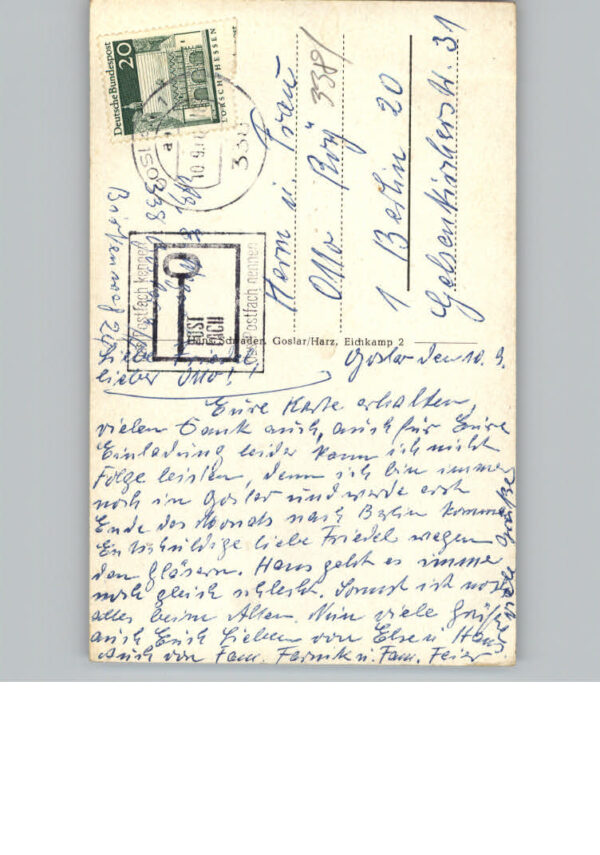 Deutsche Bundespost
20
LORSCH · HESSEN
GOSLAR
338
10.9.
a
Postfach kennen
POST
FACH
Postfach nennen
338
Birkenweg 24
Herrn u. Frau
Otto
338/
1 Berlin 20
Gelsenkircherstr. 31
Hans Schrader, Goslar/Harz, Eichkamp 2
Goslar den 10. 9.
Liebe Friedel,
lieber Otto!
Eure Karte erhalten,
vielen Dank auch, auch für Eure
Einladung leider kann ich nicht
Folge leisten, denn ich bin immer
noch in Goslar und werde erst
Ende des Monats nach Berlin kommen
Entschuldige liebe Friedel wegen
den Gläsern. Hans geht es immer
noch gleich schlecht. Sonst ist noch
alles beim Alten. Nun viele Grüße
auch Euch Lieben von Else u. Hans
Auch von Fam. u. Fam. Feier
viele Grüße